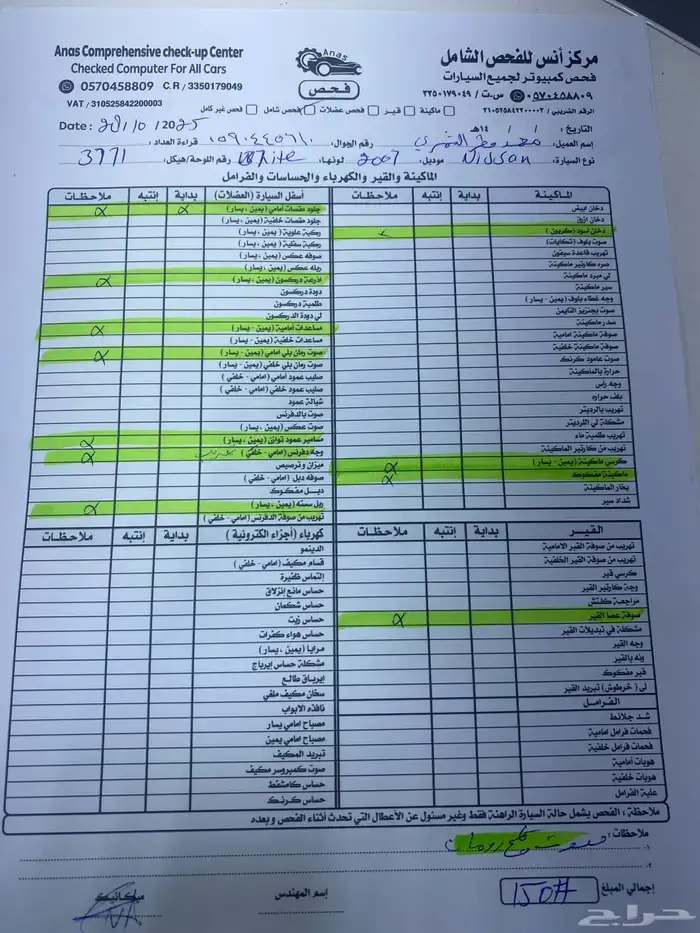 Anas Comprehensive check-up Center
Checked Computer For All Cars
0570458809 C.R / 3350179049
VAT / 310525842200003
Anas
فحص
مركز أنس للفحص الشامل
فحص كمبيوتر لجميع السيارات
٠٥٧٠٤٥٨٨٠٩ س.ت / ٣٣٥٠١٧٩٠٤٩
الرقم الضريبي / ٣١٠٥٢٥٨٤٢٢٠٠٠٠٣
ماكينة قير فحص عضلات فحص شامل فحص غير كامل
Date: 2025
التاريخ: / / ١٤هـ
إسم العميل: رقم الجوال: قراءة العداد:
نوع السيارة: Nissan موديل: 2007 لونها: White رقم اللوحة/هيكل: 3771
الماكينة والقير والكهرباء والحساسات والفرامل
الماكينة بداية إنتبه ملاحظات
دخان ابيض
دخان ازرق
دخان أسود (كربون)
صوت بلوف (تكايات)
تهريب قاعدة سيفون
صره كارتير ماكينة
لي مبرد ماكينة
سير ماكينة
وجه غطاء بلوف (يمين - يسار)
صوت بجنزير التايمن
صدر ماكينة
صوفة ماكينة امامية
صوفة ماكينة خلفية
صوت عامود كرنك
حرارة بالماكينة
وجه رأس
بلف حراره
تهريب بالرديتر
مشكلة لي اللرديتر
تهريب طلمبة ماء
تهريب من كارتير الماكينة
كرسي ماكينة (يمين - يسار)
ماكينة مفكوك
بخار الماكينة
شداد سير
أسفل السيارة (العضلات) بداية إنتبه ملاحظات
جلود مقصات امامي (يمين ، يسار)
جلود مقصات خلفية (يمين ، يسار)
ركبة علوية (يمين ، يسار)
ركبة سفلية (يمين ، يسار)
صوفه عكس (يمين ، يسار)
ربله عكس (يمين ، يسار)
اذرعة دركسون (يمين ، يسار)
دودة دركسون
طلمبة دركسون
لي دودة الدركسون
مساعدات امامية (يمين - يسار)
مساعدات خلفية (يمين - يسار)
صوت رمان بلي امامي (يمين - يسار)
صوت رمان بلي خلفي (يمين - يسار)
صليب عمود أمامي (امامي - خلفي)
صليب عمود خلفي (امامي - خلفي)
شيالة عمود
صوت بالدفرنس
صوت عكس (يمين ، يسار)
مسامير عمود توازن (يمين ، يسار)
وجه دفرنس (امامي - خلفي)
ميزان و ترصيص
صوفه دبل (امامي - خلفي)
دبل مفكوك
ربل سسته (يمين ، يسار)
تهريب من صوفة الدفرنس (امامي - خلفي)
القير بداية إنتبه ملاحظات
تهريب من صوفة القير الامامية
تهريب من صوفة القير الخلفية
كرسي قير
وجة كارتير القير
مراجعة كلتش
صوفة عصا القير
مشكلة في تبديلات القير
وجه القير
ونه بالقير
قير مفكوك
لي (خرطوش) تبريد القير
الفرامل
شد جلائط
فحمات فرامل امامية
فحمات فرامل خلفية
هوبات أمامية
هوبات خلفية
علبة الفرامل
كهرباء (أجزاء الكترونية) بداية إنتبه ملاحظات
الدينمو
قسام مكيف (امامي - خلفي)
إلتماس ظفيرة
حساس مانع إنزلاق
حساس شكمان
حساس زيت
حساس هواء كفرات
مرايا (يمين ، يسار)
مشكلة حساس إيرباج
ايرباق طالع
سخان مكيف ملغي
نافذه الابواب
مصباح امامي يسار
مصباح امامي يمين
تبريد المكيف
صوت كمبروسر مكيف
حساس كامشفط
حساس كرنك
ملاحظة : الفحص يشمل حالة السيارة الراهنة فقط وغير مسئول عن الأعطال التي تحدث أثناء الفحص و بعده
ملاحظات:
١-
٢-
إجمالي المبلغ 150#
إسم المهندس
ميكانيك
حراج